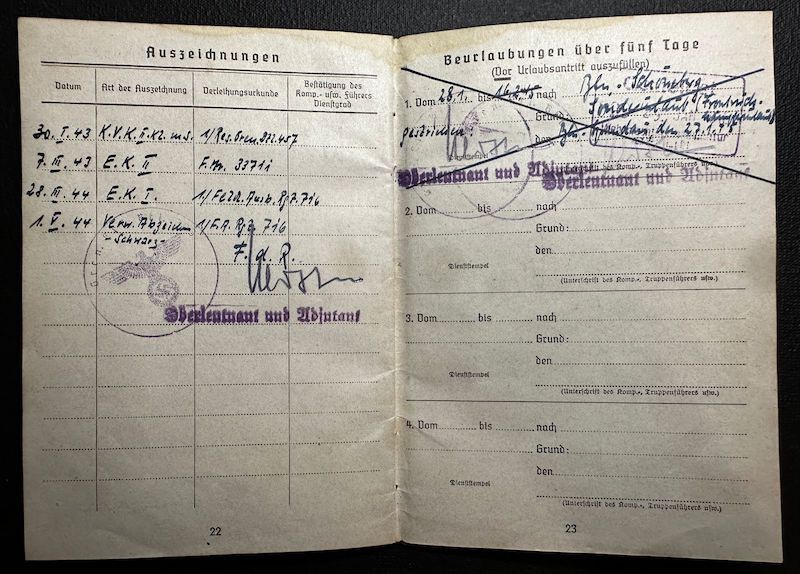 Auszeichnungen
Datum
Art der Auszeichnung
Verleihungsurkunde
Bestätigung des Komp.- usw. Führers Dienstgrad
30. I. 43 K.V.K. II. Kl. m. S. 1/Res.Gren.
7. III. 43 E.K. II F.Nr. 33711
28. III. 44 E.K. I. 1/Feld. Ausb. Rgt. 716
1. V. 44 Verw. Abzeichen 1/F.A. Rgt. 716
-Schwarz-
F. d. R.
Oberleutnant und Adjutant
22
Beurlaubungen über fünf Tage
(Vor Urlaubsantritt auszufüllen)
1. Vom 28.1. bis nach Bln.-Schöneberg
Grund: Sonderurlaub
gestrichen den 27.1.45
Dienststempel
Oberleutnant und Adjutant
Oberleutnant und Adjutant
2. Vom bis nach
Grund:
den
Dienststempel
(Unterschrift des Komp.-, Truppenführers usw.)
3. Vom bis nach
Grund:
den
Dienststempel
(Unterschrift des Komp.-, Truppenführers usw.)
4. Vom bis nach
Grund:
den
Dienststempel
(Unterschrift des Komp.-, Truppenführers usw.)
23